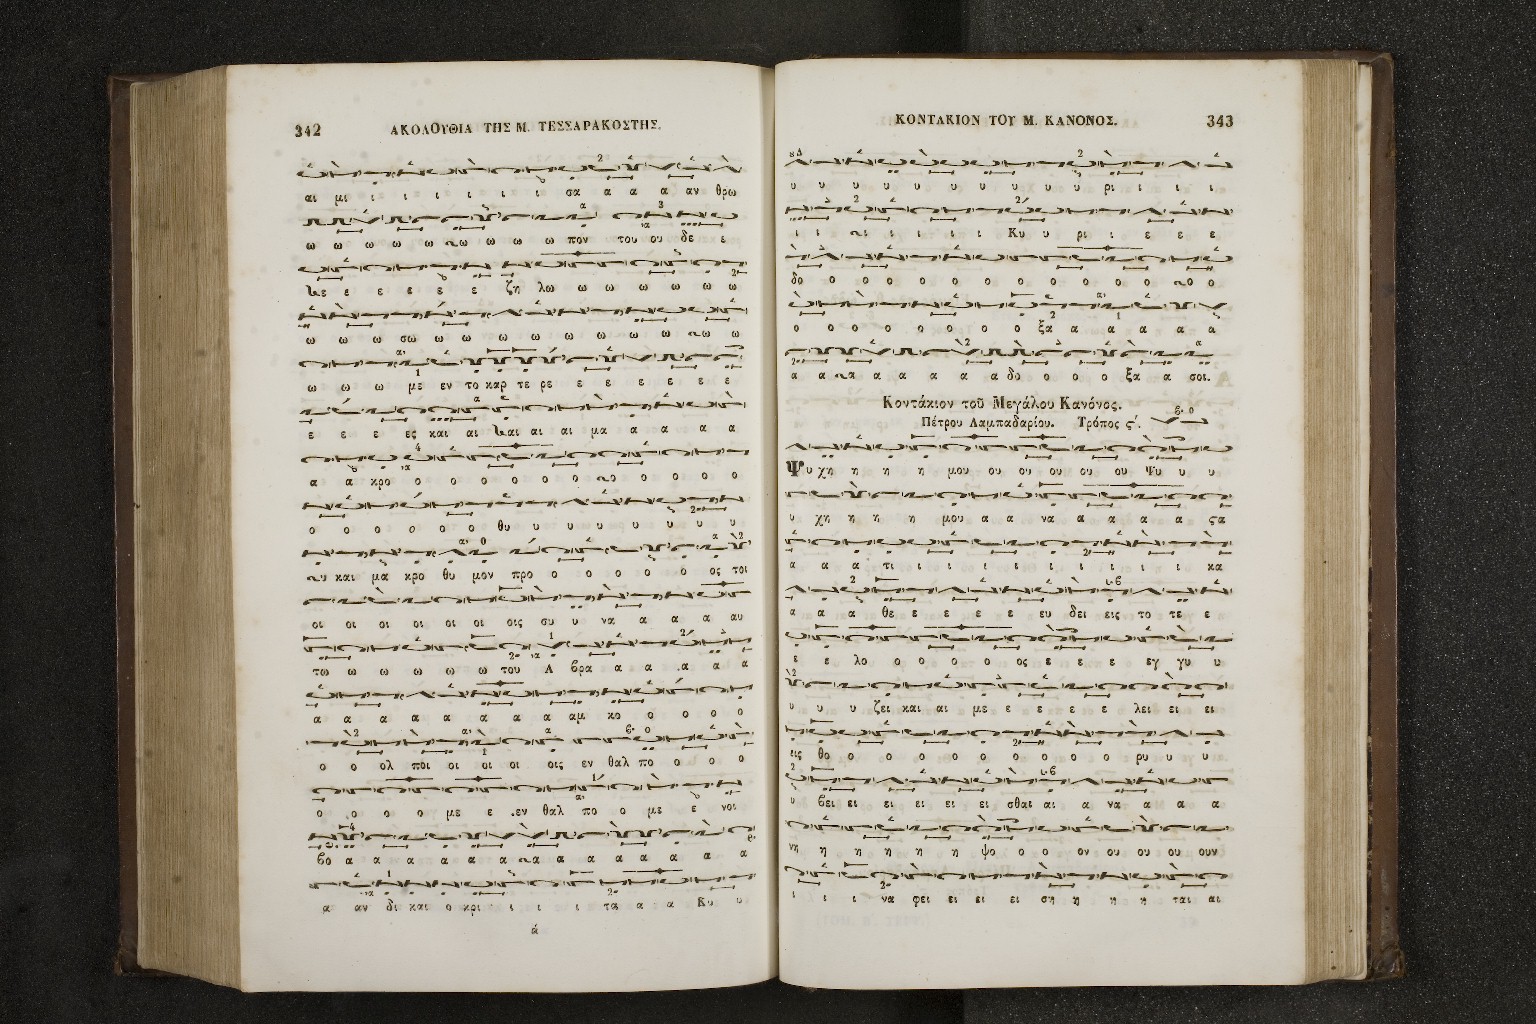 342 ΑΚΟΛΟΥΘΙΑ ΤΗΣ Μ. ΤΕΣΣΑΡΑΚΟΣΤΗΣ.
αι μι ι ι ι ι ι ι σα α α α αν θρω
ω ω ω ω ω ω ω ω ω πον του ου δε ε
ε ε ε ε ε ε ζη λω ω ω ω ω ω ω
ω ω ω σω ω ω ω ω ω ω ω ω ω ω
ω ω ω με εν το καρ τε ρε ε ε ε ε ε ε
ε ε ε ες και αι και αι αι μα α α α α
α α κρο ο ο ο ο ο ο ο ο ο ο ο
ο ο ο ο ο ο θυ υ υ υ υ υ υ υ
υ και μα κρο θυ μον προ ο ο ο ο ο ο ος τοι
οι οι οι οι οι οι οις συ υ να α α α αυ
τω ω ω ω ω ω του Α βρα α α α α α
α α α α α α α α αμ κο ο ο ο ο
ο ο ολ ποι οι οι οι οις εν θαλ πο ο ο ο
ο ο ο ο με ε εν θαλ πο ο με ε νοι
βο α α α α α α α α α α α α α
α αν δι και ο κρι ι ι ι τα α α Κυ υ
ά
ΚΟΝΤΑΚΙΟΝ ΤΟΥ Μ. ΚΑΝΟΝΟΣ. 343
υ υ υ υ υ υ υ υ υ υ ρι ι ι ι
ι ι ι ι ι ι ι Κυ υ ρι ι ε ε ε
δο ο ο ο ο ο ο ο ο ο ο ο ο ο
ο ο ο ο ο ο ο ο ξα α α α α α
α α α α α α α α δο ο ο ο ξα α σοι.
Κοντάκιον τοῦ Μεγάλου Κανόνος.
Πέτρου Λαμπαδαρίου. Τρόπος ς΄.
Ψυ χη η η η μου ου ου ου ου ου Ψυ υ υ
υ χη η η η μου α α να α α α α ςα
α α α τι ι ι ι ι ι ι ι ι ι κα
α α α θε ε ε ε ε ευ δει εις το τε ε
ε ε λο ο ο ο ο ος ε ε ε εγ γυ υ
υ υ υ ζει και αι με ε ε ε ε λει ει ει
εις θο ο ο ο ο ο ο ο ο ο ρυ υ υ
υ βει ει ει ει ει ει σθαι αι α να α α α
νη η η η η η ψο ο ο ον ου ου ου ουν
ι ι ι να φει ει ει ει ση η η η ται αι